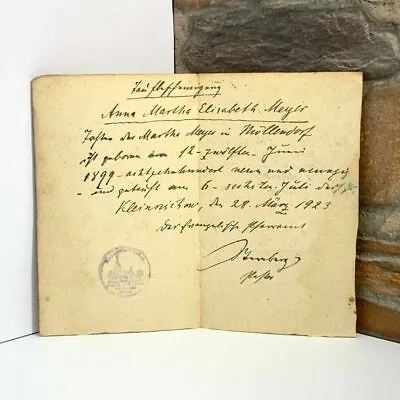 Taufbescheinigung
Anna Martha Elisabeth Meyer
Tochter der Martha Meyer in Möllendorf
ist geboren am 12-zwölften-Juni
1899-achtzehnhundert neun und neunzig
- und getauft am 6-sechsten-Juli
den 28. März 1923
Der evangelische Pfarramt
Pastor